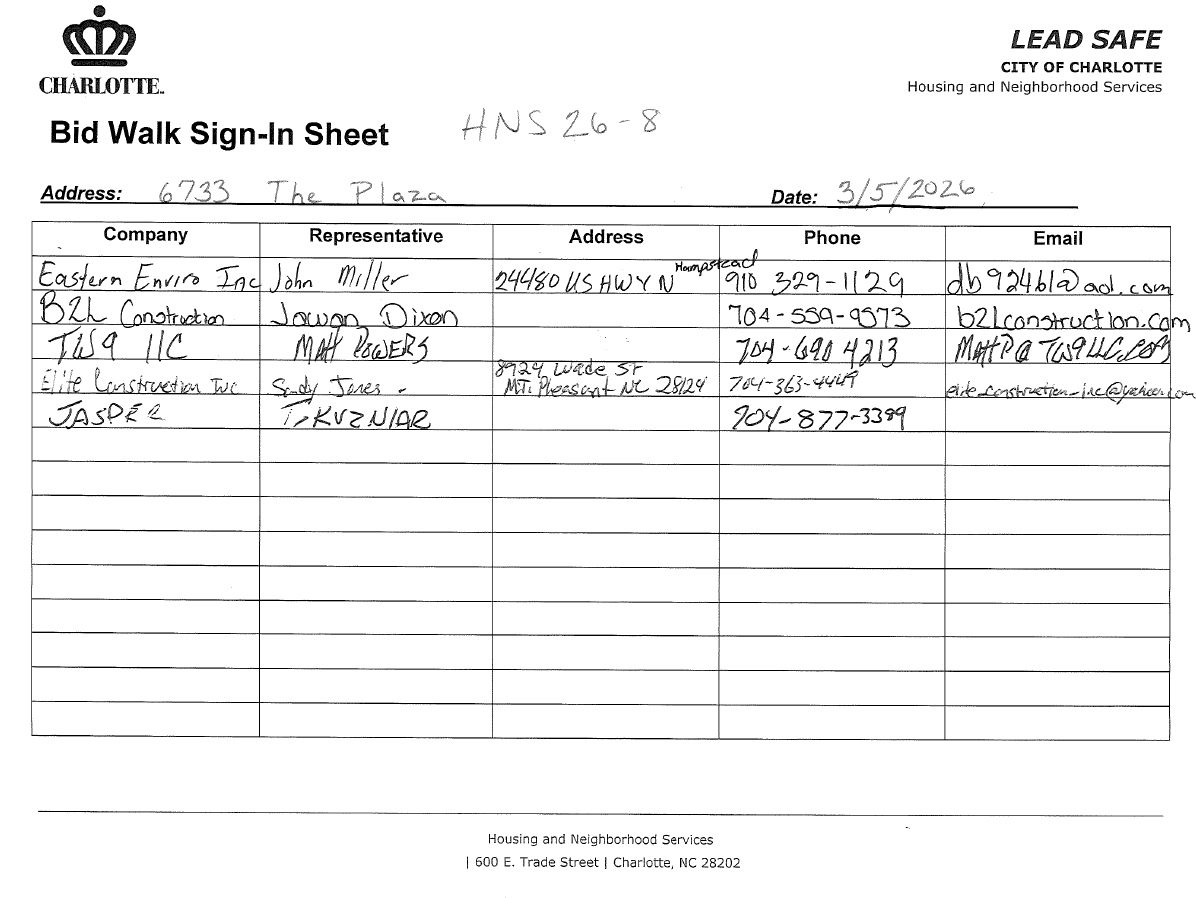 CHARLOTTE.
LEAD SAFE
CITY OF CHARLOTTE
Housing and Neighborhood Services
Bid Walk Sign-In Sheet HNS 26-8
Address: 6733 The Plaza Date: 3/5/2026
Company Representative Address Phone Email
Eastern Enviro Inc John Miller 24480 US HWY N Hampstead 910 329-1129 db92461@aol.com
B2L Construction Jawan Dixon 704-559-9573 b2lconstruction.com
TW9 LLC MATT POWERS 704-690 4213 MATTP@TW9LLC.COM
Elite Construction Inc Sandy Jones 8924 Wade St
Mt. Pleasant NC 28124 704-363-4449 elite_construction_inc@yahoo.com
JASPER T. KUZNIAR 704-877-3389
Housing and Neighborhood Services
| 600 E. Trade Street | Charlotte, NC 28202